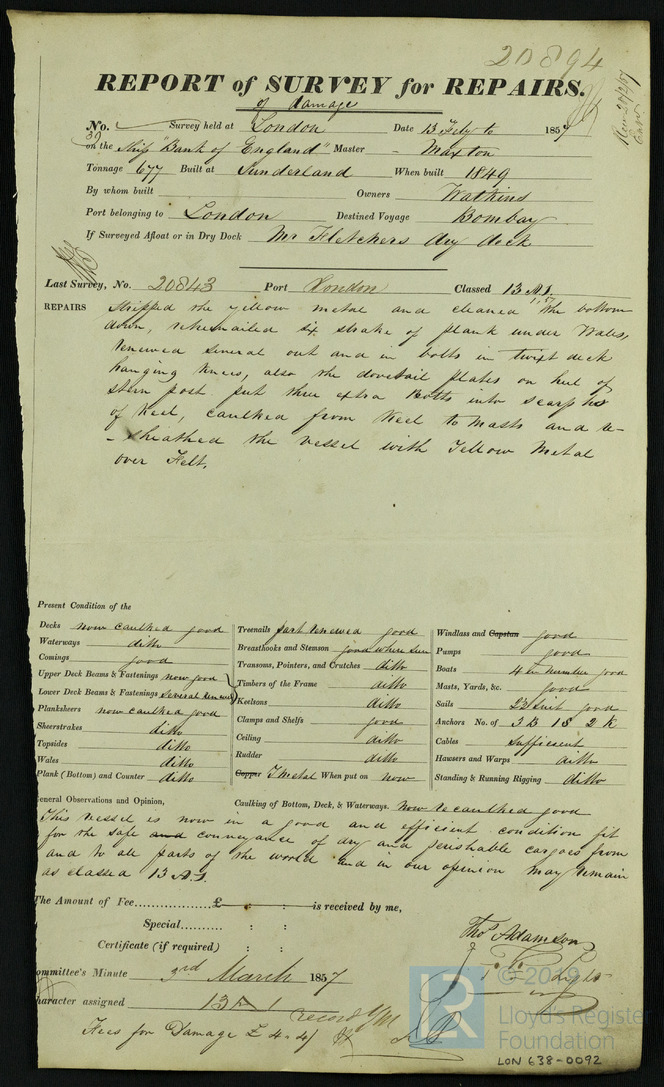 20894
REPORT of SURVEY for REPAIRS.
of damage
No. 39 Survey held at London Date 13 Feby to 1857
on the Ship "Bank of England" Master - Maxton
Tonnage 677 Built at Sunderland When built 1849
By whom built Owners Watkins
Port belonging to London Destined Voyage Bombay
If Surveyed Afloat or in Dry Dock Mr Fletchers dry dock
Last Survey, No. 20843 Port London Classed 13 A.1.
1,57
REPAIRS Stripped the yellow metal and cleaned the bottom
down, retrenailed six strake of plank under Wales,
renewed several out and in bolts in twixt deck
hanging knees, also the dovetail plates on heel of
stern post put three extra bolts into scarphs
of keel, caulked from keel to Masts and re-
-sheathed the vessel with Yellow Metal
over Felt.
Present Condition of the
Decks now caulked good
Waterways ditto
Comings good
Upper Deck Beams & Fastenings now good
Lower Deck Beams & Fastenings several renewed
Planksheers now caulked good
Sheerstrakes ditto
Topsides ditto
Wales ditto
Plank (Bottom) and Counter ditto
Treenails part renewed good
Breasthooks and Stemson good where seen
Transoms, Pointers, and Crutches ditto
Timbers of the Frame ditto
Keelsons ditto
Clamps and Shelfs good
Ceiling ditto
Rudder ditto
Copper Y Metal When put on now
Windlass and Capstan good
Pumps good
Boats 4 in number good
Masts, Yards, &c. good
Sails good
Anchors No. of 3 B 1 S 2 K
Cables Sufficient
Hawsers and Warps ditto
Standing & Running Rigging ditto
General Observations and Opinion, Caulking of Bottom, Deck, & Waterways. Now recaulked good
This vessel is now in a good and efficient condition fit
for the safe and conveyance of dry and perishable cargoes from
and to all parts of the world and in our opinion may remain
as classed 13 A.1.
The Amount of Fee £ : : is received by me,
Special : :
Certificate (if required) : :
Thos Adamson
Committee's Minute 3rd March 1857
Character assigned 13 A 1
Fees for Damage £ 4.4/
© 2019
LR
Lloyd's Register
Foundation
LON 638-0092